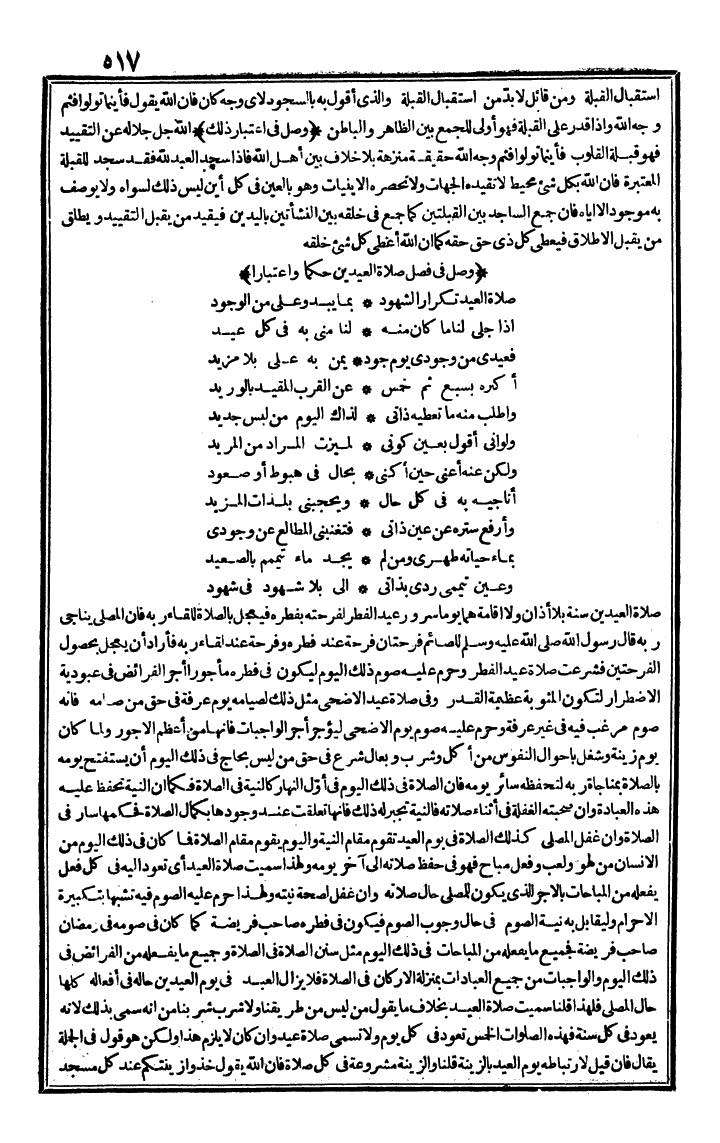 ٥١٧
استقبال القبلة ومن قائل لابدّ من استقبال القبلة والذى أقول به بالسجود لاى وجه كان فان الله يقول فأينما تولوا فثم
وجه الله واذا قدر على القبلة فهو أولى للجمع بين الظاهر والباطن ﴿وصل فى اعتبار ذلك﴾ الله جل جلاله عن التقييد
فهو قبلة القلوب فأينما تولوا فثم وجه الله حقيقة منزهة بلا خلاف بين أهل الله فاذا سجد العبد لله فقد سجد للقبلة
المعتبرة فان الله بكل شئ محيط لا تقيده الجهات ولا تحصره الاينيات وهو بالعين فى كل أين ليس ذلك لسواه ولا يوصف
به موجود الا اياه فان جمع الساجد بين القبلتين كما جمع فى خلقه بين النشأتين باليدين فيقيد من يقبل التقييد ويطلق
من يقبل الاطلاق فيعطى كل ذى حق حقه كما ان الله أعطى كل شئ خلقه
﴿وصل فى فصل صلاة العيدين حكما واعتبارا﴾
صلاة العيد تكرار الشهود * بما يبدو على من الوجود
اذا جلى لنا ما كان منه * لنا منى به فى كل عيد
فعيدى من وجودى يوم جود * يمن به على بلا مزيد
أكبره بسبع ثم خمس * عن القرب المقيد بالوريد
واطلب منه ما تعطيه ذاتى * لذاك اليوم من لبس جديد
ولوانى أقول بعين كونى * لميزت المراد من المريد
ولكن عنه أعنى حين أكنى * بحال فى هبوط أو صعود
أناجيه به فى كل حال * ويحجبنى بلذات المزيد
وأرفع ستره عن عين ذاتى * فتغنينى المطالع عن وجودى
بماء حياته طهرى ومن لم * يجد ماء تيمم بالصعيد
وعين تيممى ردى بذاتى * الى بلا شهود فى شهود
صلاة العيدين سنة بلا أذان ولا اقامة هما يوما سرور عيد الفطر لفرحته بفطره فيعجل بالصلاة للقاء ربه فان المصلى يناجى
ربه قال رسول الله صلى الله عليه وسلم للصائم فرحتان فرحة عند فطره وفرحة عند لقاء ربه فأراد أن يعجل بحصول
الفرحتين فشرعت صلاة عيد الفطر وحرم عليه صوم ذلك اليوم ليكون فى فطره مأجورا أجر الفرائض فى عبودية
الاضطرار لتكون المثوبة عظيمة القدر وفى صلاة عيد الاضحى مثل ذلك لصيامه يوم عرفة فى حق من صامه فانه
صوم مرغب فيه فى غير عرفة وحرم عليه صوم يوم الاضحى ليؤجر أجر الواجبات فانها من أعظم الاجور ولما كان
يوم زينة وشغل باحوال النفوس من أكل وشرب وبعال شرع فى حق من ليس بحاج فى ذلك اليوم أن يستفتح يومه
بالصلاة بمناجاة ربه لتحفظه سائر يومه فان الصلاة فى ذلك اليوم فى أوّل النهار كالنية فى الصلاة فكما ان النية تحفظ عليه
هذه العبادة وان صحبته الغفلة فى أثناء صلاته فالنية تجبر له ذلك فانها تعلقت عند وجودها بكمال الصلاة فحكمها سار فى
الصلاة وان غفل المصلى كذلك الصلاة فى يوم العيد تقوم مقام النية واليوم يقوم مقام الصلاة فما كان فى ذلك اليوم من
الانسان من لهو ولعب وفعل مباح فهو فى حفظ صلاته الى آخر يومه ولهذا سميت صلاة العيد أى تعود اليه فى كل فعل
يفعله من المباحات بالاجر الذى يكون للمصلى حال صلاته وان غفل لصحة نيته ولهذا حرم عليه الصوم فيه تشبها بتكبيرة
الاحرام وليقابل به نية الصوم فى حال وجوب الصوم فيكون فى فطره صاحب فريضة كما كان فى صومه فى رمضان
صاحب فريضة فجميع ما يفعله من المباحات فى ذلك اليوم مثل سنن الصلاة فى الصلاة وجميع ما يفعله من الفرائض فى
ذلك اليوم والواجبات من جميع العبادات بمنزلة الاركان فى الصلاة فلا يزال العبد فى يوم العيدين حاله فى أفعاله كلها
حال المصلى فلهذا قلنا سميت صلاة العيد بخلاف ما يقول من ليس من طريقنا ولا شرب شربنا من انه سمى بذلك لانه
يعود فى كل سنة فهذه الصلوات الخمس تعود فى كل يوم ولا تسمى صلاة عيد وان كان لا يلزم هذا ولكن هو قول فى الجملة
يقال فان قيل لارتباطه يوم العيد بالزينة قلنا والزينة مشروعة فى كل صلاة فان الله يقول خذوا زينتكم عند كل مسجد